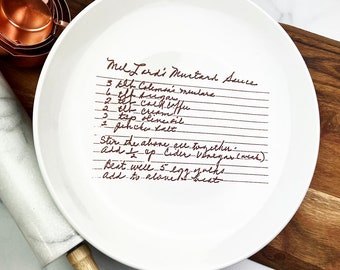 Mel Lord's Mustard Sauce
3 tbl Coleman's mustard
6 tbl sugar
2 tbl Cold Coffee
2 tbl Cream
2 tsp olive oil
2 pinches salt
Stir the above all together.
Add 1/2 cp Cider Vinegar (weak)
Beat well 5 egg yolks
add to above & heat